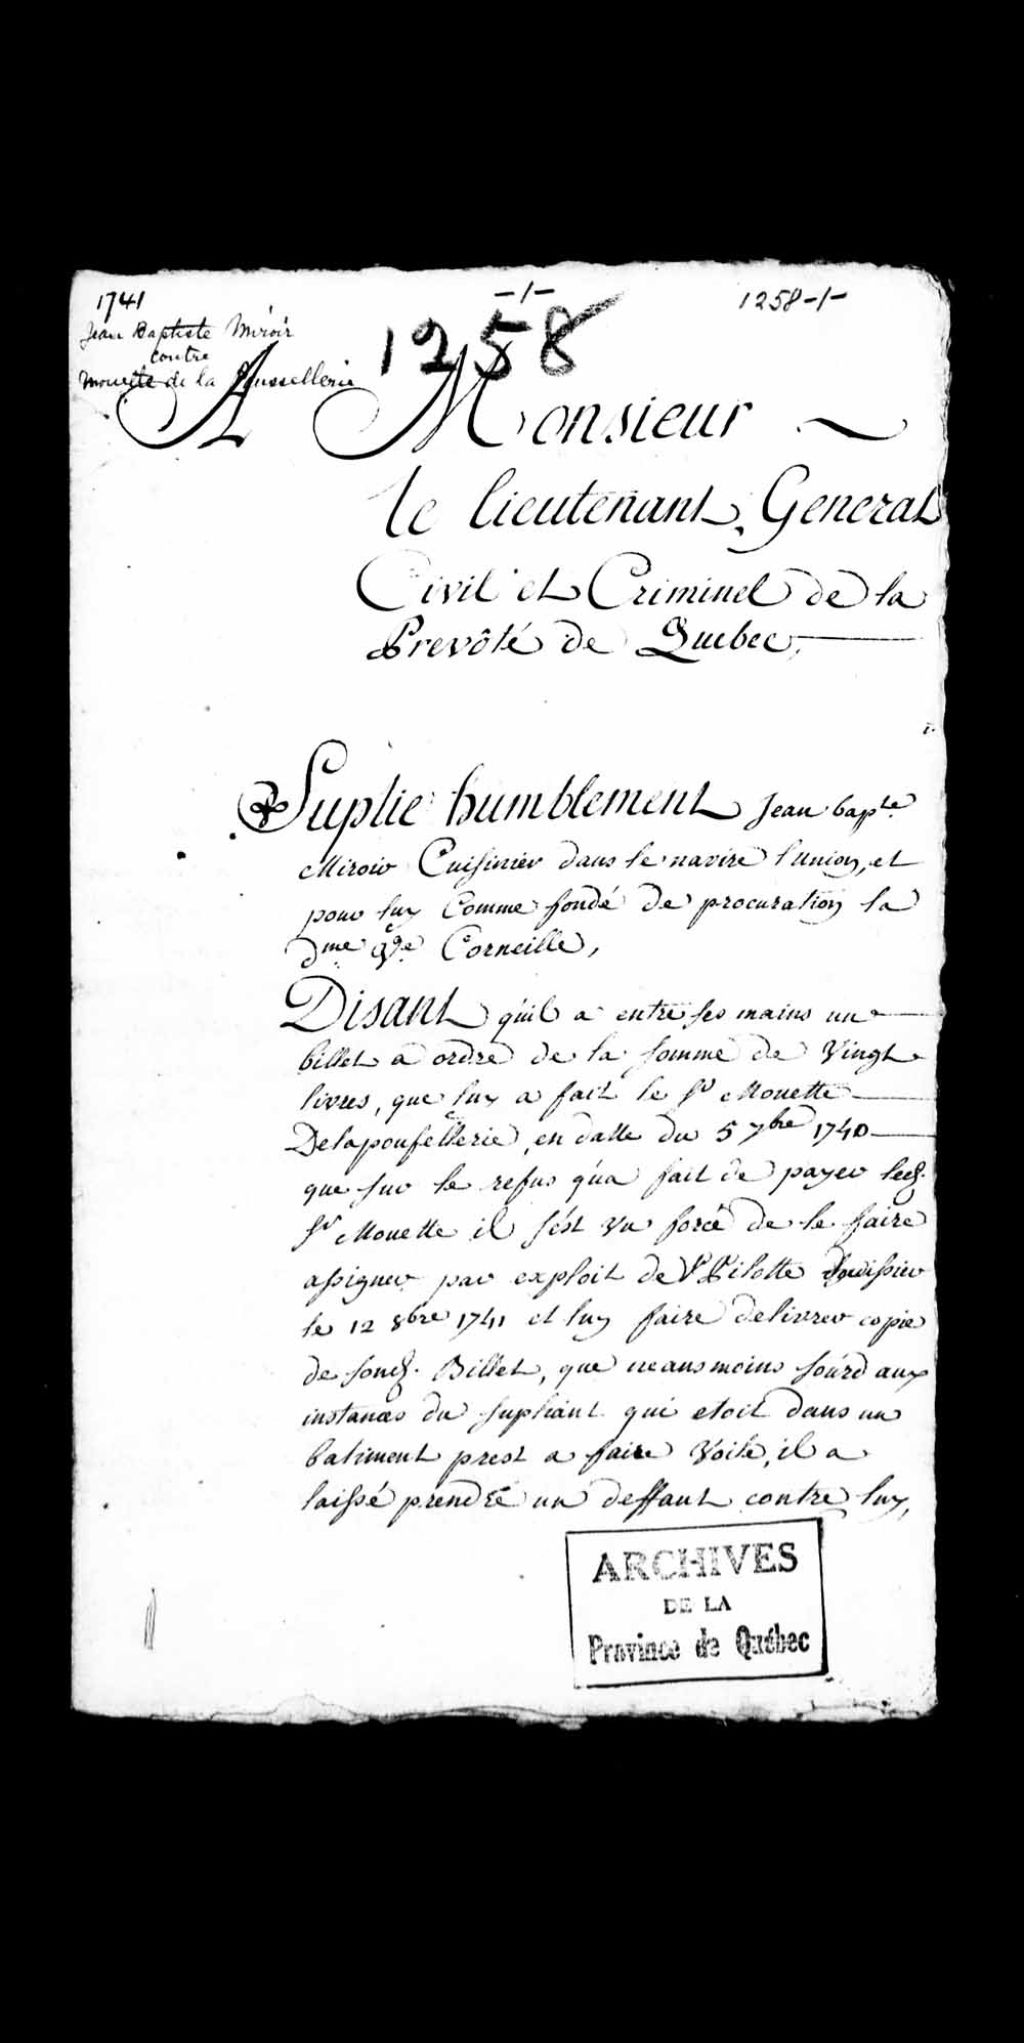 1741
Jean Baptiste Miroir
contre
Mouette de la Poussellerie
-1-
1258
1258-1-
A Monsieur
le lieutenant General
Civil et Criminel de la
Prevôté de Quebec,
Suplie humblement Jean bapte
Miroir Cuisinier dans le navire l'union, et
pour luy Comme fondé de procuration la
dme Corneille,
Disant qu'il a entre ses mains un
billet a ordre de la somme de Vingt
livres, que luy a fait le Sr Mouette
Delapousellerie, en datte du 5 7bre 1740
que sur le refus qu'a fait de payer led.
Sr Mouette il s'est vu forcé de le faire
assigner par exploit de Pilotte huissier
le 12 8bre 1741 et luy faire delivrer copie
de sond. Billet, que neansmoins sourd aux
instances du supliant qui etoit dans un
batiment prest a faire Voile, il a
laissé prendre un deffaut contre luy,
ARCHIVES
DE LA
Province de Québec